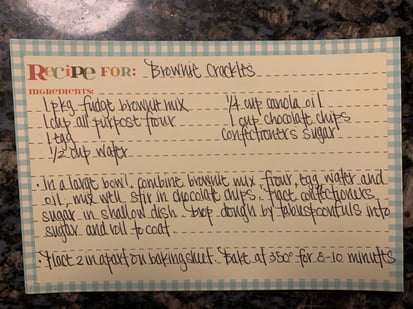 Recipe FOR: Brownie Crackles
INGREDIENTS:
1 pkg fudge brownie mix
1 cup all purpose flour
1 egg
1/2 cup water
1/4 cup canola oil
1 cup chocolate chips
confectioners sugar
· In a large bowl, combine brownie mix, flour, egg, water and
oil, mix well. Stir in chocolate chips. Place confectioners
sugar in shallow dish. Drop dough by tablespoonfuls into
sugar and roll to coat.
· Place 2 in apart on baking sheet. Bake at 350° for 8-10 minutes